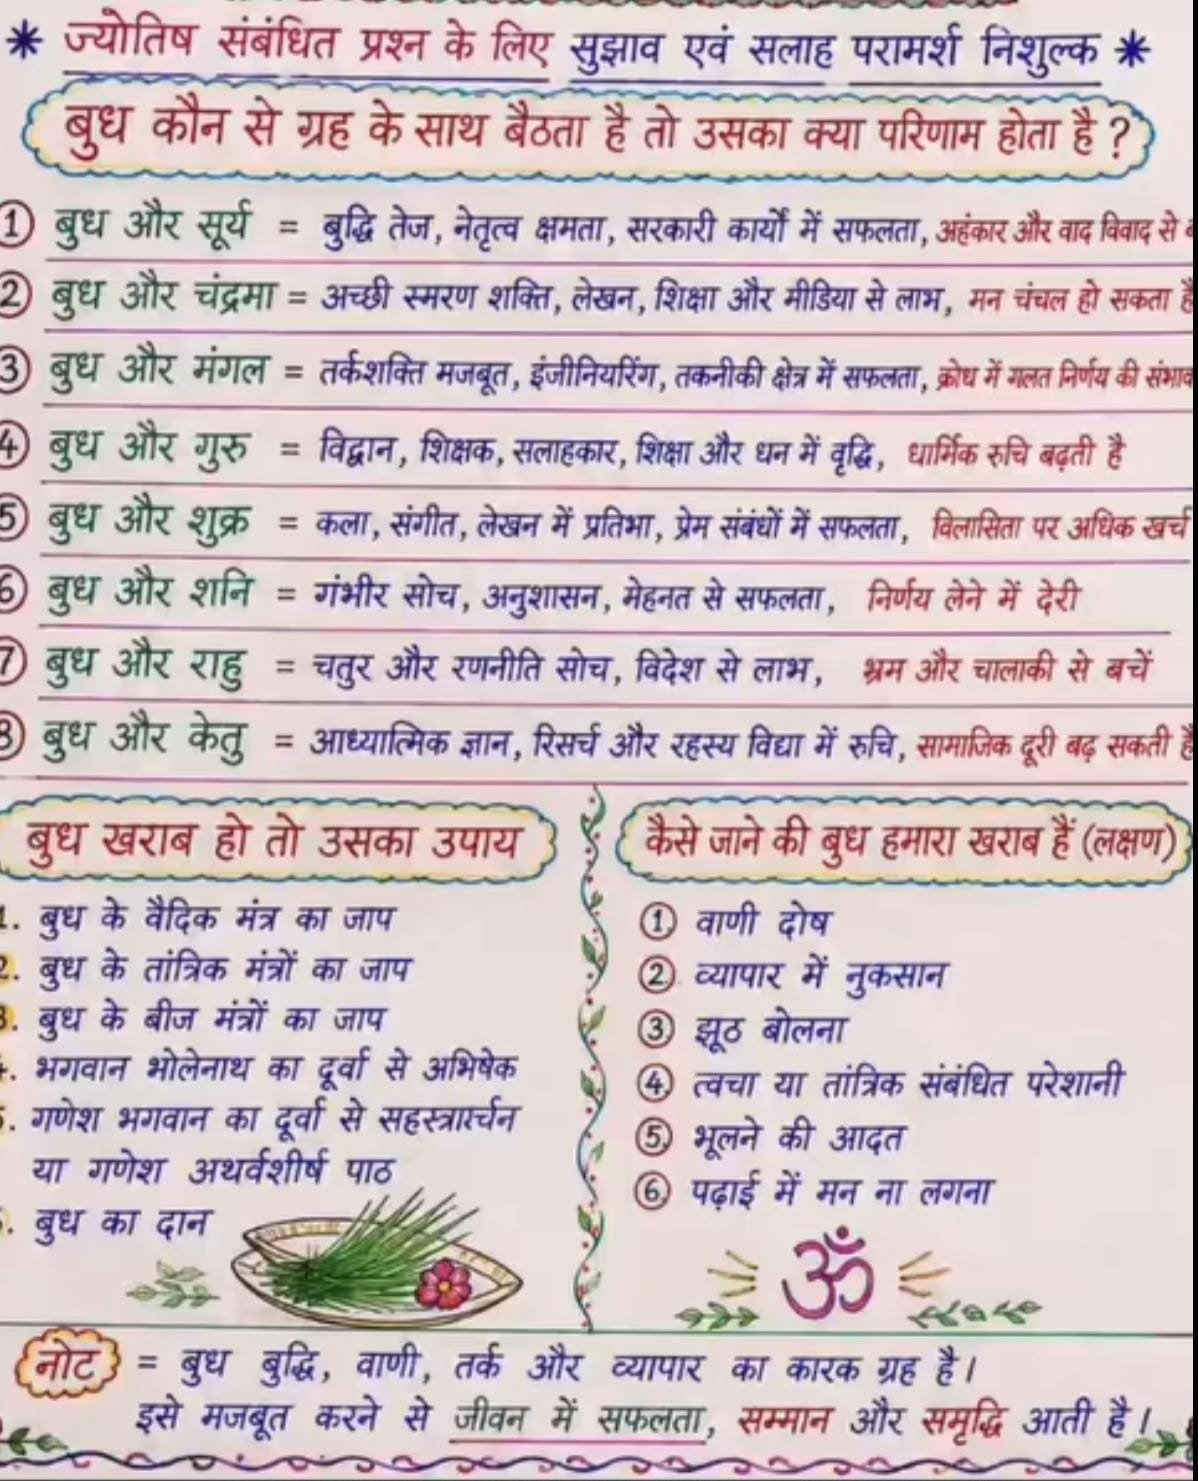 * ज्योतिष संबंधित प्रश्न के लिए सुझाव एवं सलाह परामर्श निशुल्क *
बुध कौन से ग्रह के साथ बैठता है तो उसका क्या परिणाम होता है ?
① बुध और सूर्य = बुद्धि तेज, नेतृत्व क्षमता, सरकारी कार्यों में सफलता, अहंकार और वाद विवाद से
② बुध और चंद्रमा = अच्छी स्मरण शक्ति, लेखन, शिक्षा और मीडिया से लाभ, मन चंचल हो सकता है
③ बुध और मंगल = तर्कशक्ति मजबूत, इंजीनियरिंग, तकनीकी क्षेत्र में सफलता, क्रोध में गलत निर्णय की
④ बुध और गुरु = विद्वान, शिक्षक, सलाहकार, शिक्षा और धन में वृद्धि, धार्मिक रुचि बढ़ती है
⑤ बुध और शुक्र = कला, संगीत, लेखन में प्रतिभा, प्रेम संबंधों में सफलता, विलासिता पर अधिक खर्च
⑥ बुध और शनि = गंभीर सोच, अनुशासन, मेहनत से सफलता, निर्णय लेने में देरी
⑦ बुध और राहु = चतुर और रणनीति सोच, विदेश से लाभ, भ्रम और चालाकी से बचें
⑧ बुध और केतु = आध्यात्मिक ज्ञान, रिसर्च और रहस्य विद्या में रुचि, सामाजिक दूरी बढ़ सकती है
बुध खराब हो तो उसका उपाय
1. बुध के वैदिक मंत्र का जाप
2. बुध के तांत्रिक मंत्रों का जाप
3. बुध के बीज मंत्रों का जाप
. भगवान भोलेनाथ का दूर्वा से अभिषेक
. गणेश भगवान का दूर्वा से सहस्त्रार्चन
या गणेश अथर्वशीर्ष पाठ
. बुध का दान
कैसे जाने की बुध हमारा खराब हैं (लक्षण)
① वाणी दोष
② व्यापार में नुकसान
③ झूठ बोलना
④ त्वचा या तांत्रिक संबंधित परेशानी
⑤ भूलने की आदत
⑥ पढ़ाई में मन ना लगना
ॐ
नोट = बुध बुद्धि, वाणी, तर्क और व्यापार का कारक ग्रह है।
इसे मजबूत करने से जीवन में सफलता, सम्मान और समृद्धि आती है।